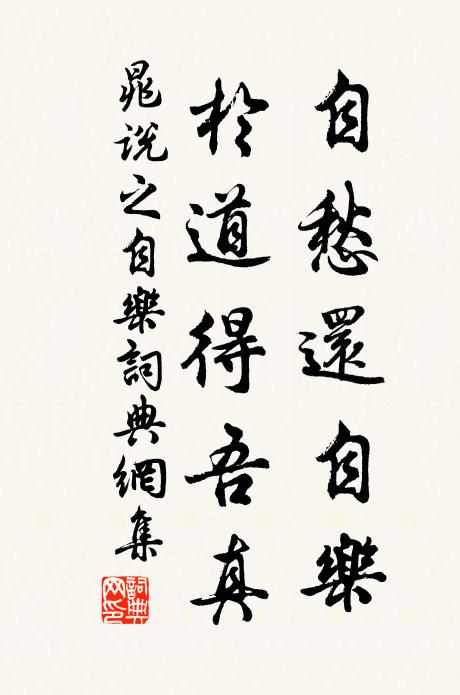 自愁還自樂
於道得吾真
晁説之自樂詞典網集
詞典网印